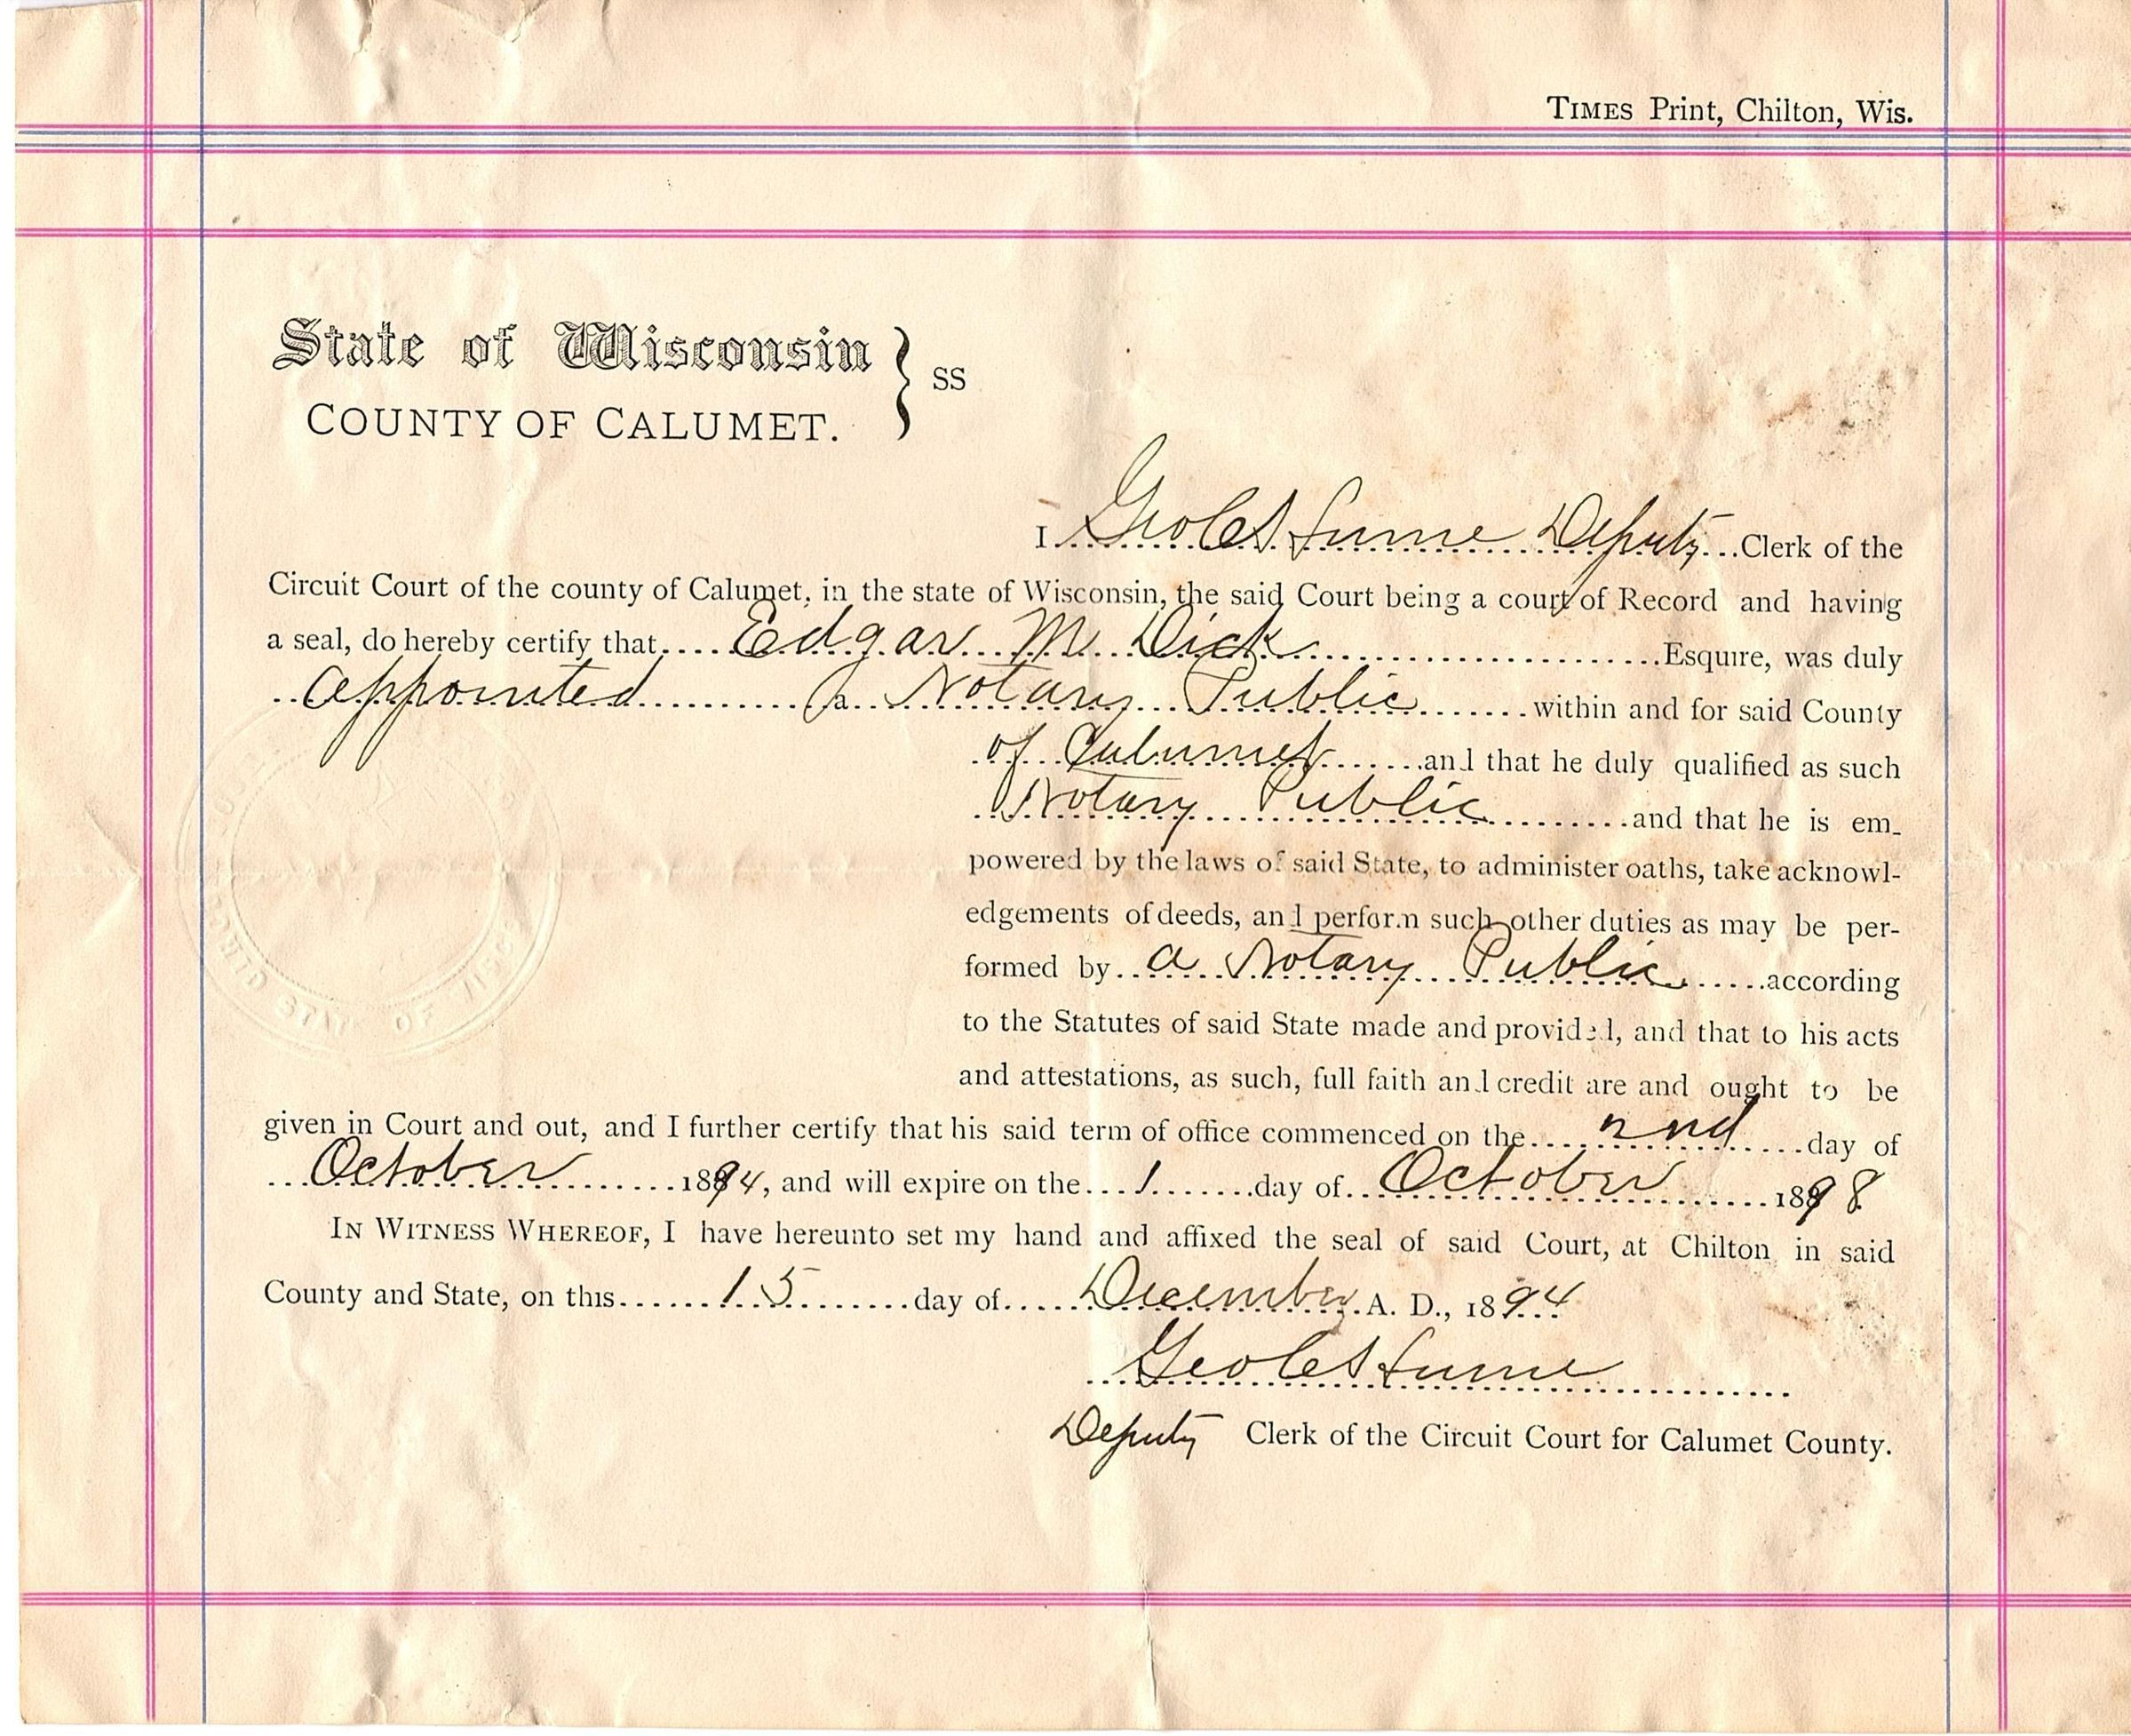 TIMES Print, Chilton, Wis.
State of Wisconsin } ss
COUNTY OF CALUMET.
I Geo Hume Deputy Clerk of the
Circuit Court of the county of Calumet, in the state of Wisconsin, the said Court being a court of Record and having
a seal, do hereby certify that Edgar M. Dick Esquire, was duly
appointed a Notary Public within and for said County
of Calumet and that he duly qualified as such
Notary Public and that he is em-
powered by the laws of said State, to administer oaths, take acknowl-
edgements of deeds, and perform such other duties as may be per-
formed by a Notary Public according
to the Statutes of said State made and provided, and that to his acts
and attestations, as such, full faith and credit are and ought to be
given in Court and out, and I further certify that his said term of office commenced on the 2nd day of
October 1894, and will expire on the 1 day of October 1898
IN WITNESS WHEREOF, I have hereunto set my hand and affixed the seal of said Court, at Chilton in said
County and State, on this 15 day of December A. D., 1894
Geo Hume
Deputy Clerk of the Circuit Court for Calumet County.